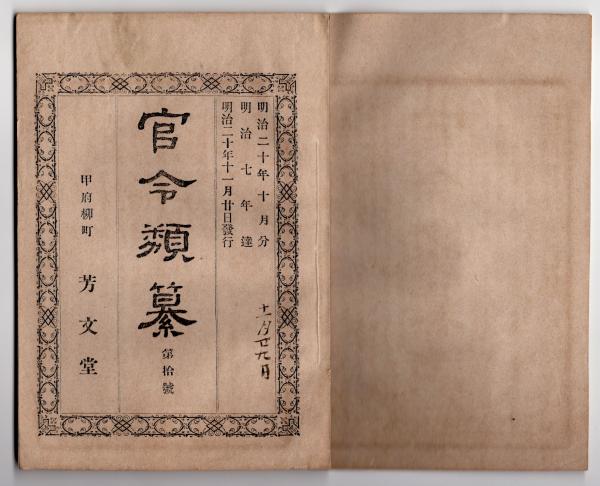 明治二十年十月分
明治七年達
明治二十年十一月廿日發行
十一月廿九日
官令類纂
第拾號
甲府柳町
芳文堂